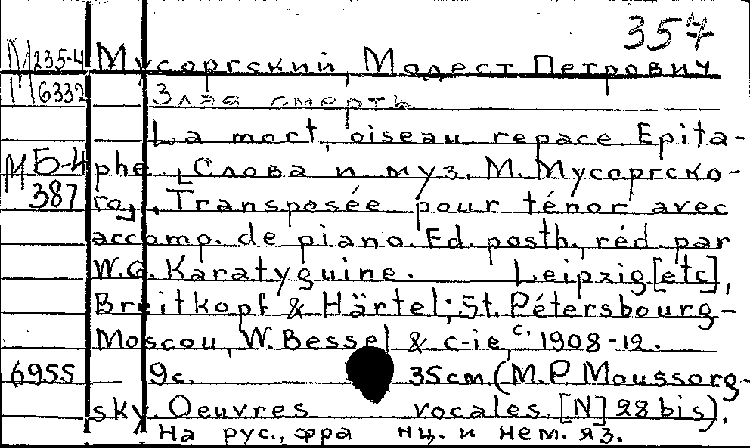 354
М235-4 Мусоргский, Модест Петрович
М6332 Злая смерть
La mort, oiseau repace Epita-
М Б-4 phe. [Слова и муз. М. Мусоргско-
387 го]. Transposée pour ténor avec
accomp. de piano. Ed. posth., réd. par
W.G. Karatyguine. Leipzig [etc],
Breitkopf & Härtel; St. Pétersbourg-
Moscou, W. Bessel & c-ie, c. 1908-12.
6955 9с. 35cm. (M.P. Moussorg-
sky. Oeuvres vocales. [N] 28 bis).
На рус., фра нц. и нем. яз.